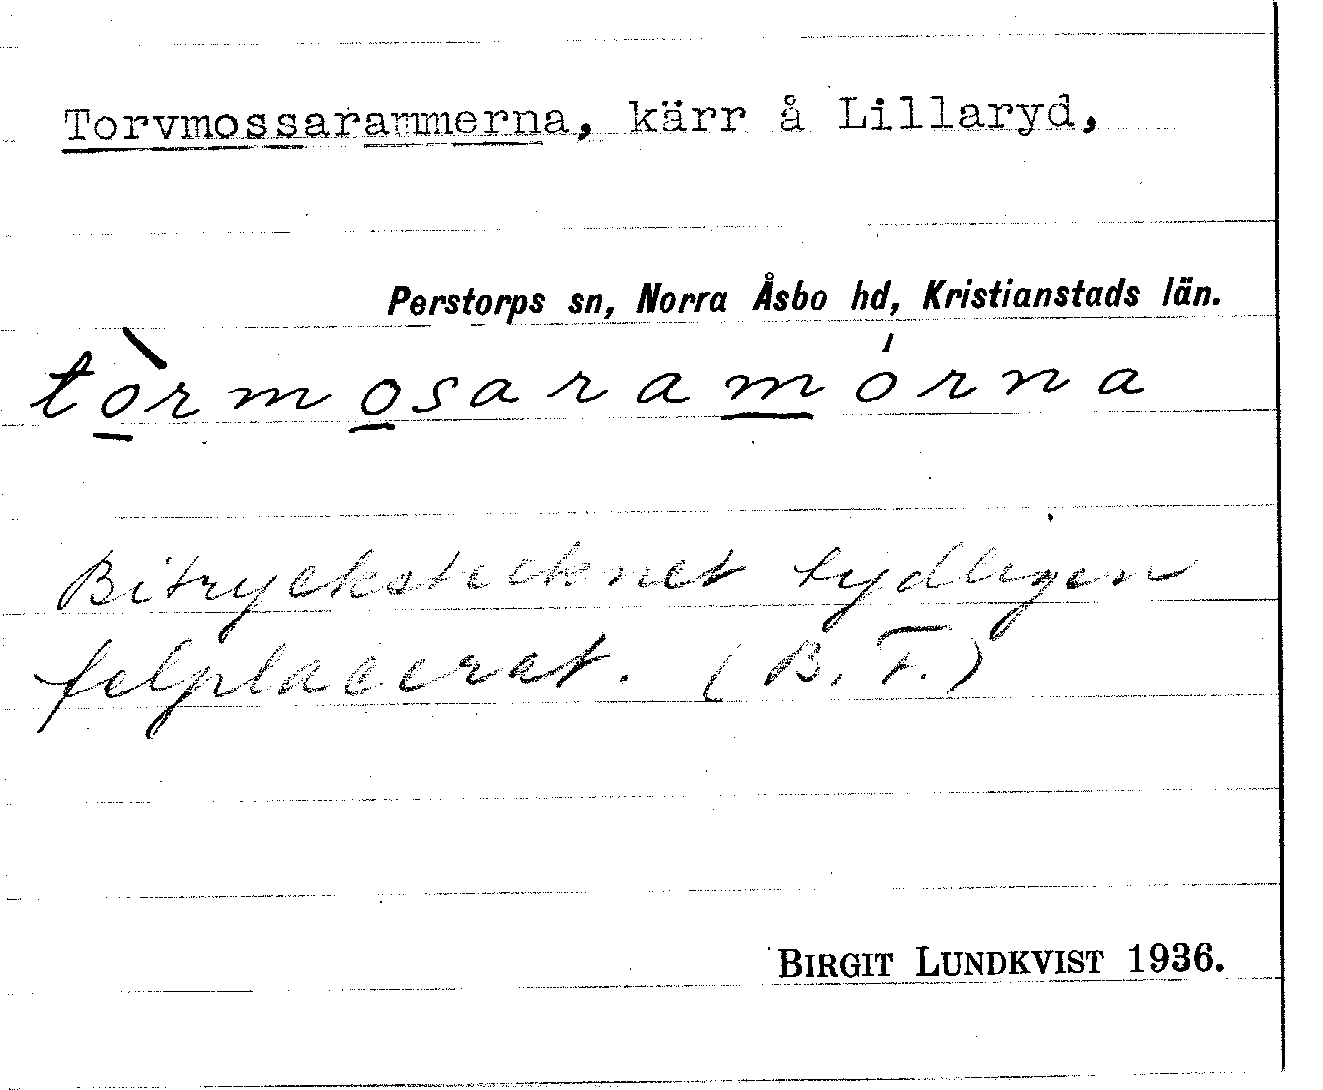 Torvmossarammerna, kärr å Lillaryd,
Perstorps sn, Norra Åsbo hd, Kristianstads län.
tòrmosaramórna
Bitryckstecknet tydligen
felplacerat. (B. F.)
BIRGIT LUNDKVIST 1936.